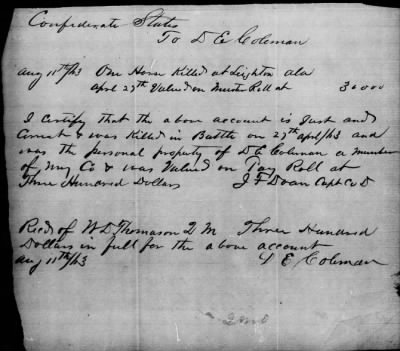 Confederate States
To D E Coleman
Aug 11th/63 One Horse Killed at Leighton Ala
April 27th Valued on Muster Roll at 30000
I Certify that the above account is Just and
Correct & was Killed in Battle on 27th April/63 and
was the personal property of D E Coleman a member
of my Co & was Valued on Pay Roll at
Three Hundred Dollars J F Doan Capt Co D
Recd of W D Thomason Q M Three Hundred
Dollars in full for the above account
Aug 11th/63 D E Coleman